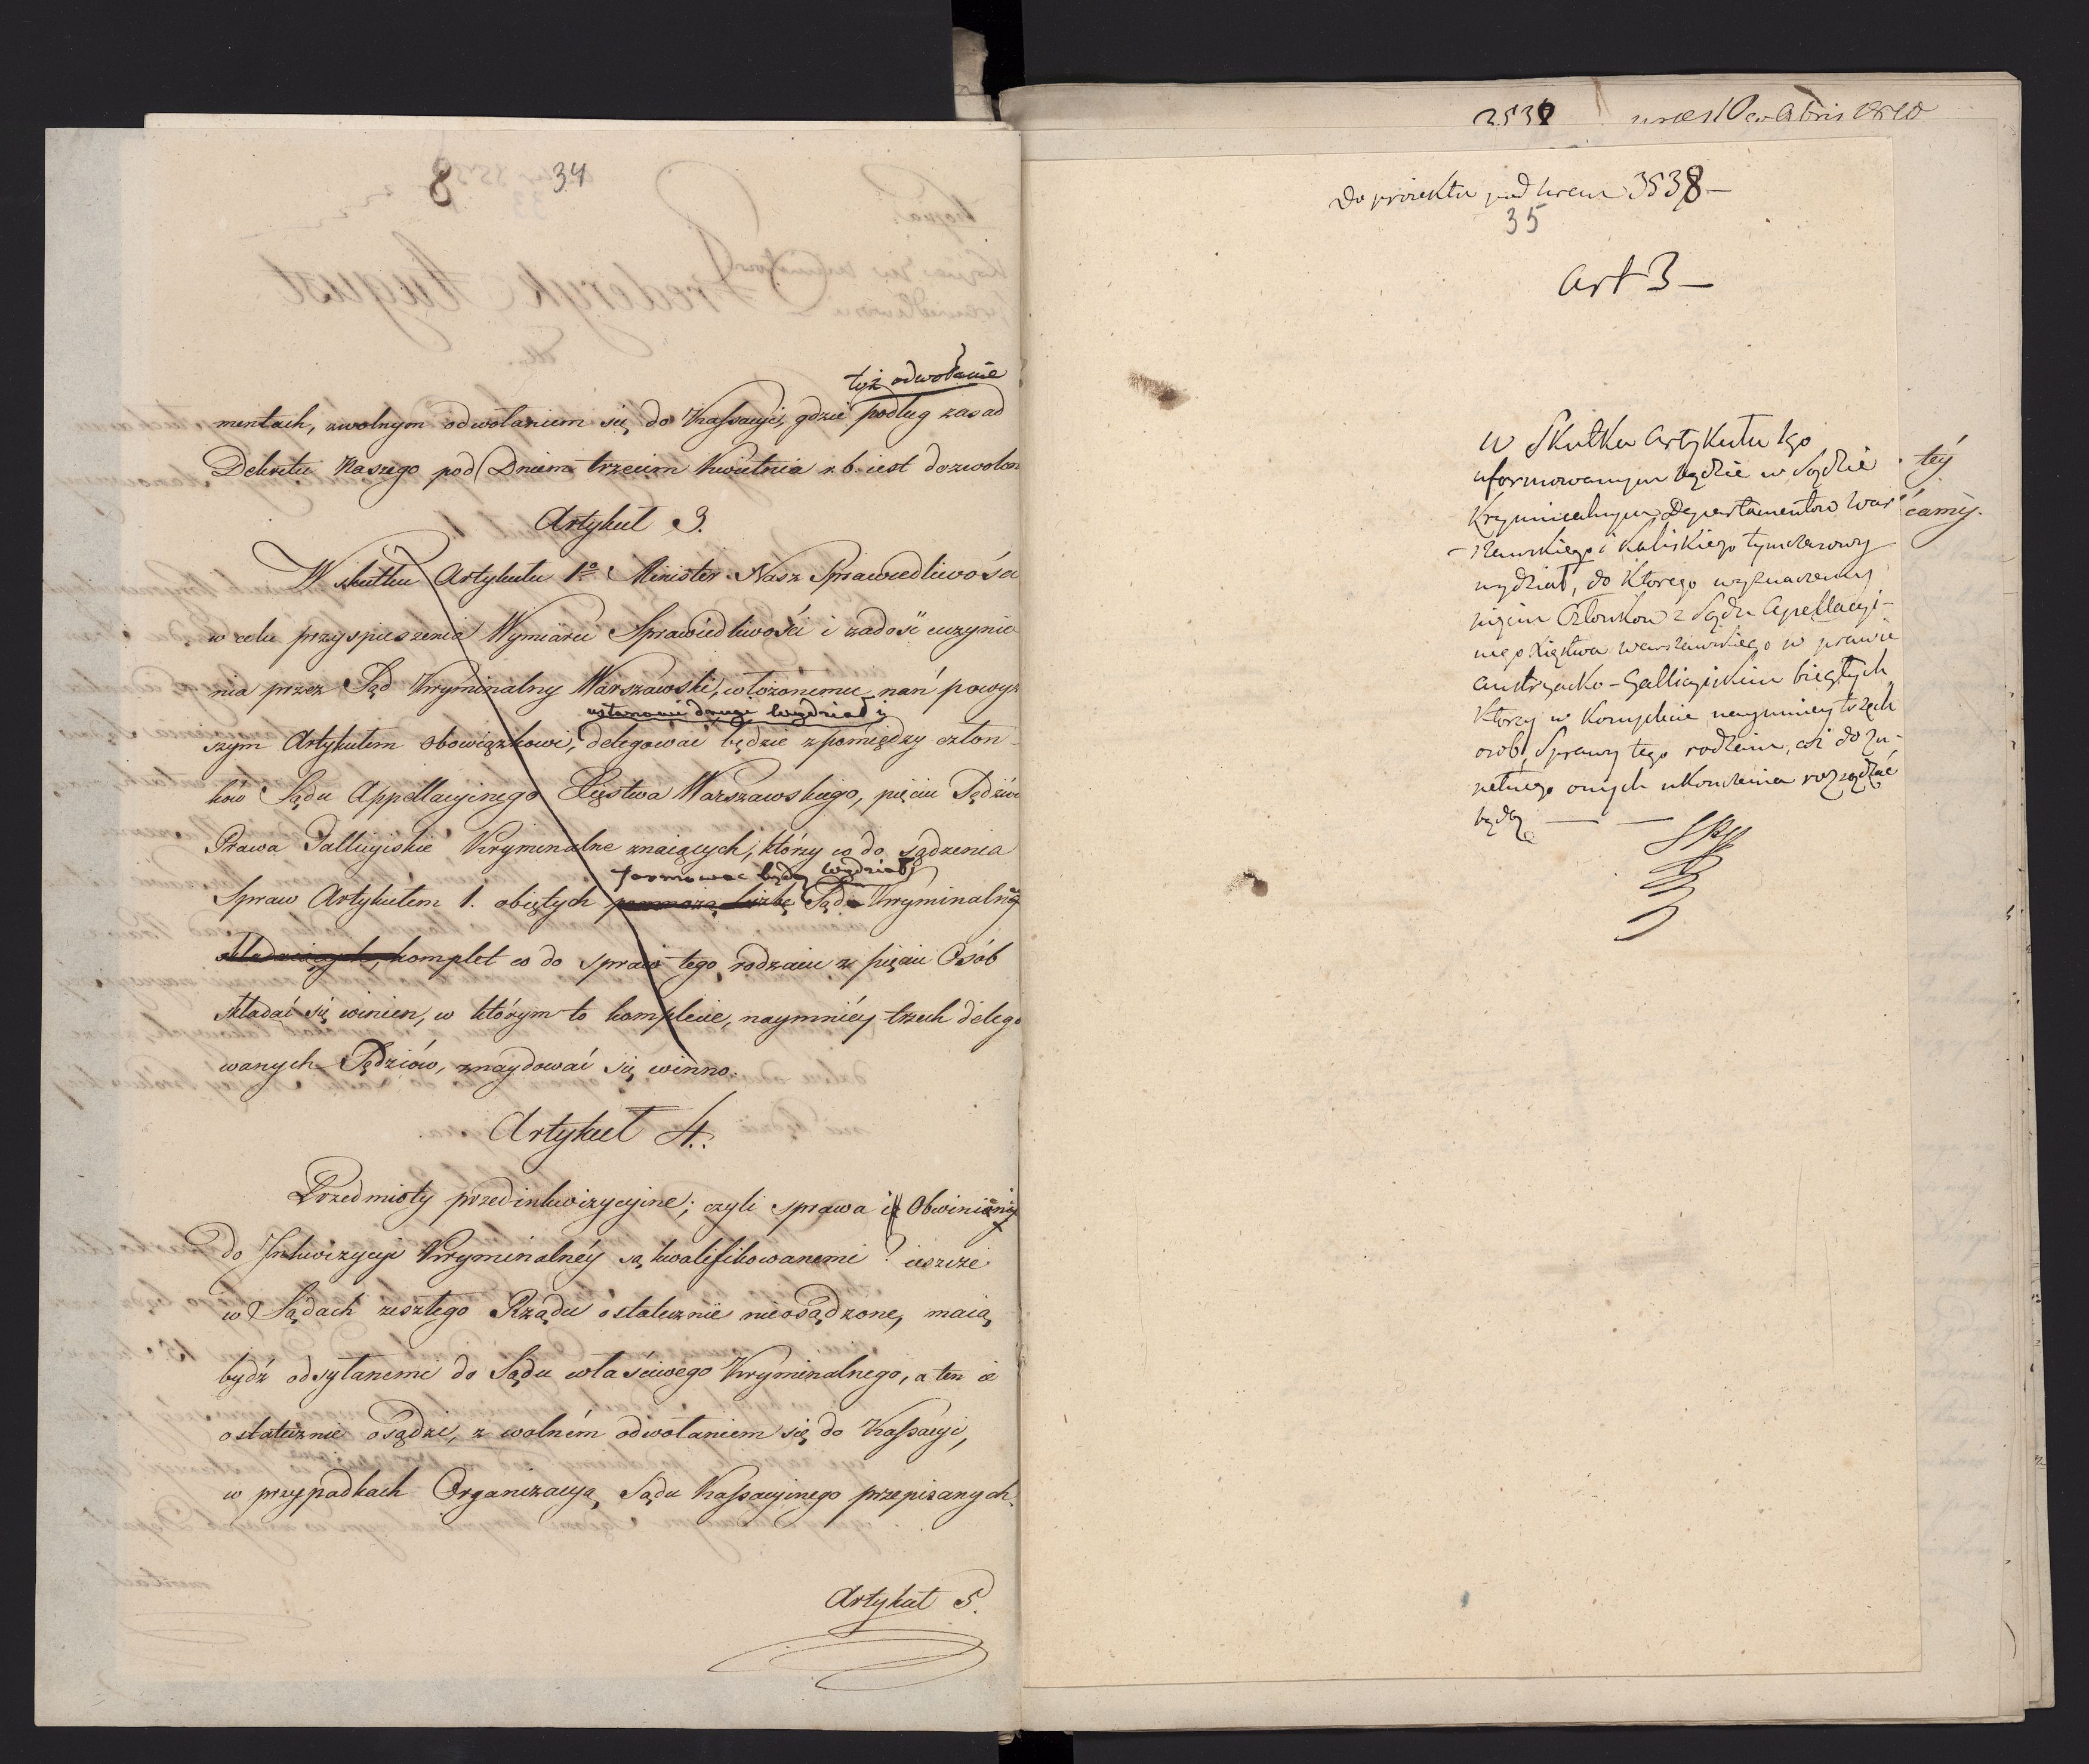 8 34
też odwołanie
mentach, zwolnym odwołaniem się do Kassacyi, gdzie podług zasad
Dekretu Naszego pod Dniem trzecim Kwietnia r.b. iest dozwolon
Artykuł 3.
W skutku Artykułu 1º Minister Nasz Sprawiedliwości
w celu przyspieszenia Wymiaru Sprawiedliwości i zadość uczynie
nia przez Sąd Kryminalny Warszawski, włożonemu nań powyż
ustanowi drugi wydział i
szym Artykułem obowiązkowi, delegować będzie zpomiędzy człon-
ków Sądu Appellacyinego Xięstwa Warszawskiego, pięciu Sędziów
Prawa Galliciyiskie Kryminalne znaiących, którzy co do sądzenia
formować będą wydział
Spraw Artykułem 1. obiętych pomnożą liczbę Sądu Kryminalny
składaiących, komplet co do spraw tego rodzaiu z pięciu Osób
składać się winien, w którym to komplecie, naymniéy trzech delego
wanych Sędziów, znaydować się winno.
Artykuł 4.
Przedmioty przedinkwizycyine; czyli sprawa i Obwiniony
do Inkwizycyi Kryminalnéy są kwalifikowanemi? ieszcze
w Sądach zeszłego Rządu ostatecznie nieosądzone, maią
bydź odsyłanemi do Sądu właściwego Kryminalnego, a ten ie
ostatecznie osądzi, z wolném odwołaniem się do Kassacyi,
w przypadkach Organizacyą Sądu Kassacyinego przepisanych.
Artykuł 5.
3538
Do proiektu pod Nrem 3538 –
35
Art 3 –
W Skutku Artykułu 1go
uformowanym będzie w Sądzie
Kryminalnym Departamentów War
– szawskiego i Kaliskiego tymczasowy
wydział, do którego wyznaczemy
pięciu Członków z Sądu Apellacyi-
nego Xięstwa Warszawskiego w prawie
austryacko-Galliciyiskim biegłych
którzy w Komplecie naymniey trzech
osob, Sprawy tego rodzaiu, aż do zu-
pełnego onych ukończenia rozsądzać
będą –– ––
téy
camy.